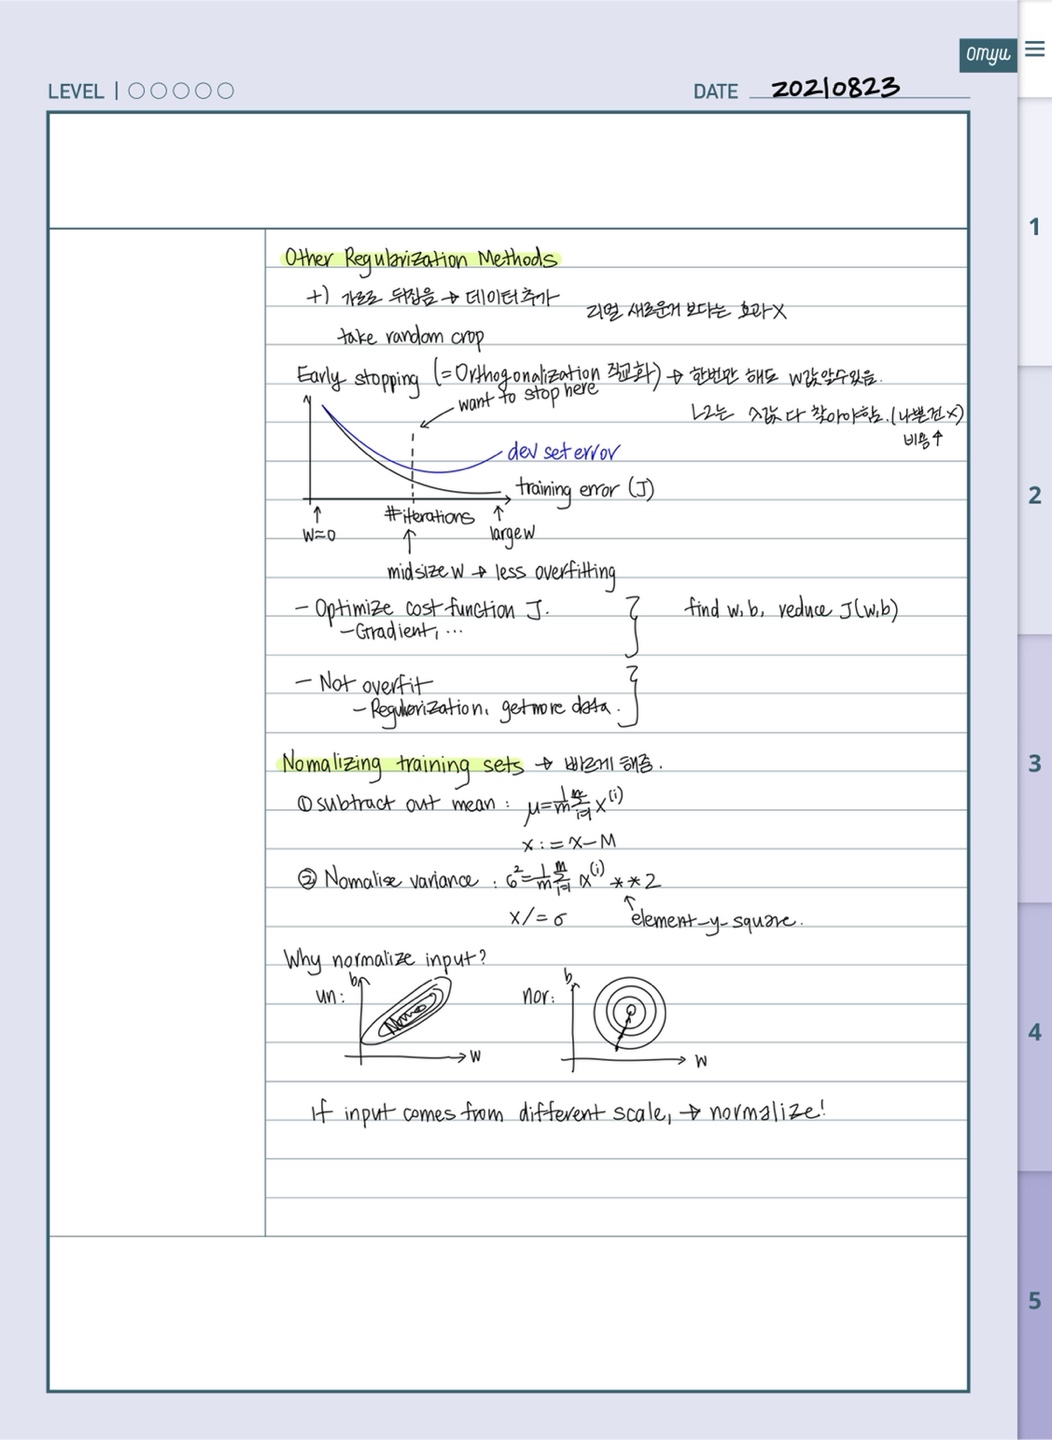 omyu
LEVEL | ○○○○○
DATE 20210823
Other Regularization Methods
+) 가로로 뒤집음 → 데이터추가
리얼 새로운거 보다는 효과X
take random crop
Early stopping (=Orthogonalization 직교화) → 한번만 해도 w값알수있음.
want to stop here
L2는 λ값 다 찾아야함.(나쁜건X)
비용↑
dev set error
training error (J)
#iterations
w≈0
large w
midsize w → less overfitting
- Optimize cost function J.
- Gradient, ...
find w, b, reduce J(w,b)
- Not overfit
- Regularization, get more data.
Nomalizing training sets → 빠르게 해줌.
① subtract out mean : μ=1/m Σ(i=1 to m) x^(i)
x := x-M
② Nomalise variance : σ²=1/m Σ(i=1 to m) x^(i) **2
x/=σ
↑ element-y-square.
Why normalize input?
un: b w
nor: b w
If input comes from different scale, → normalize!
1
2
3
4
5